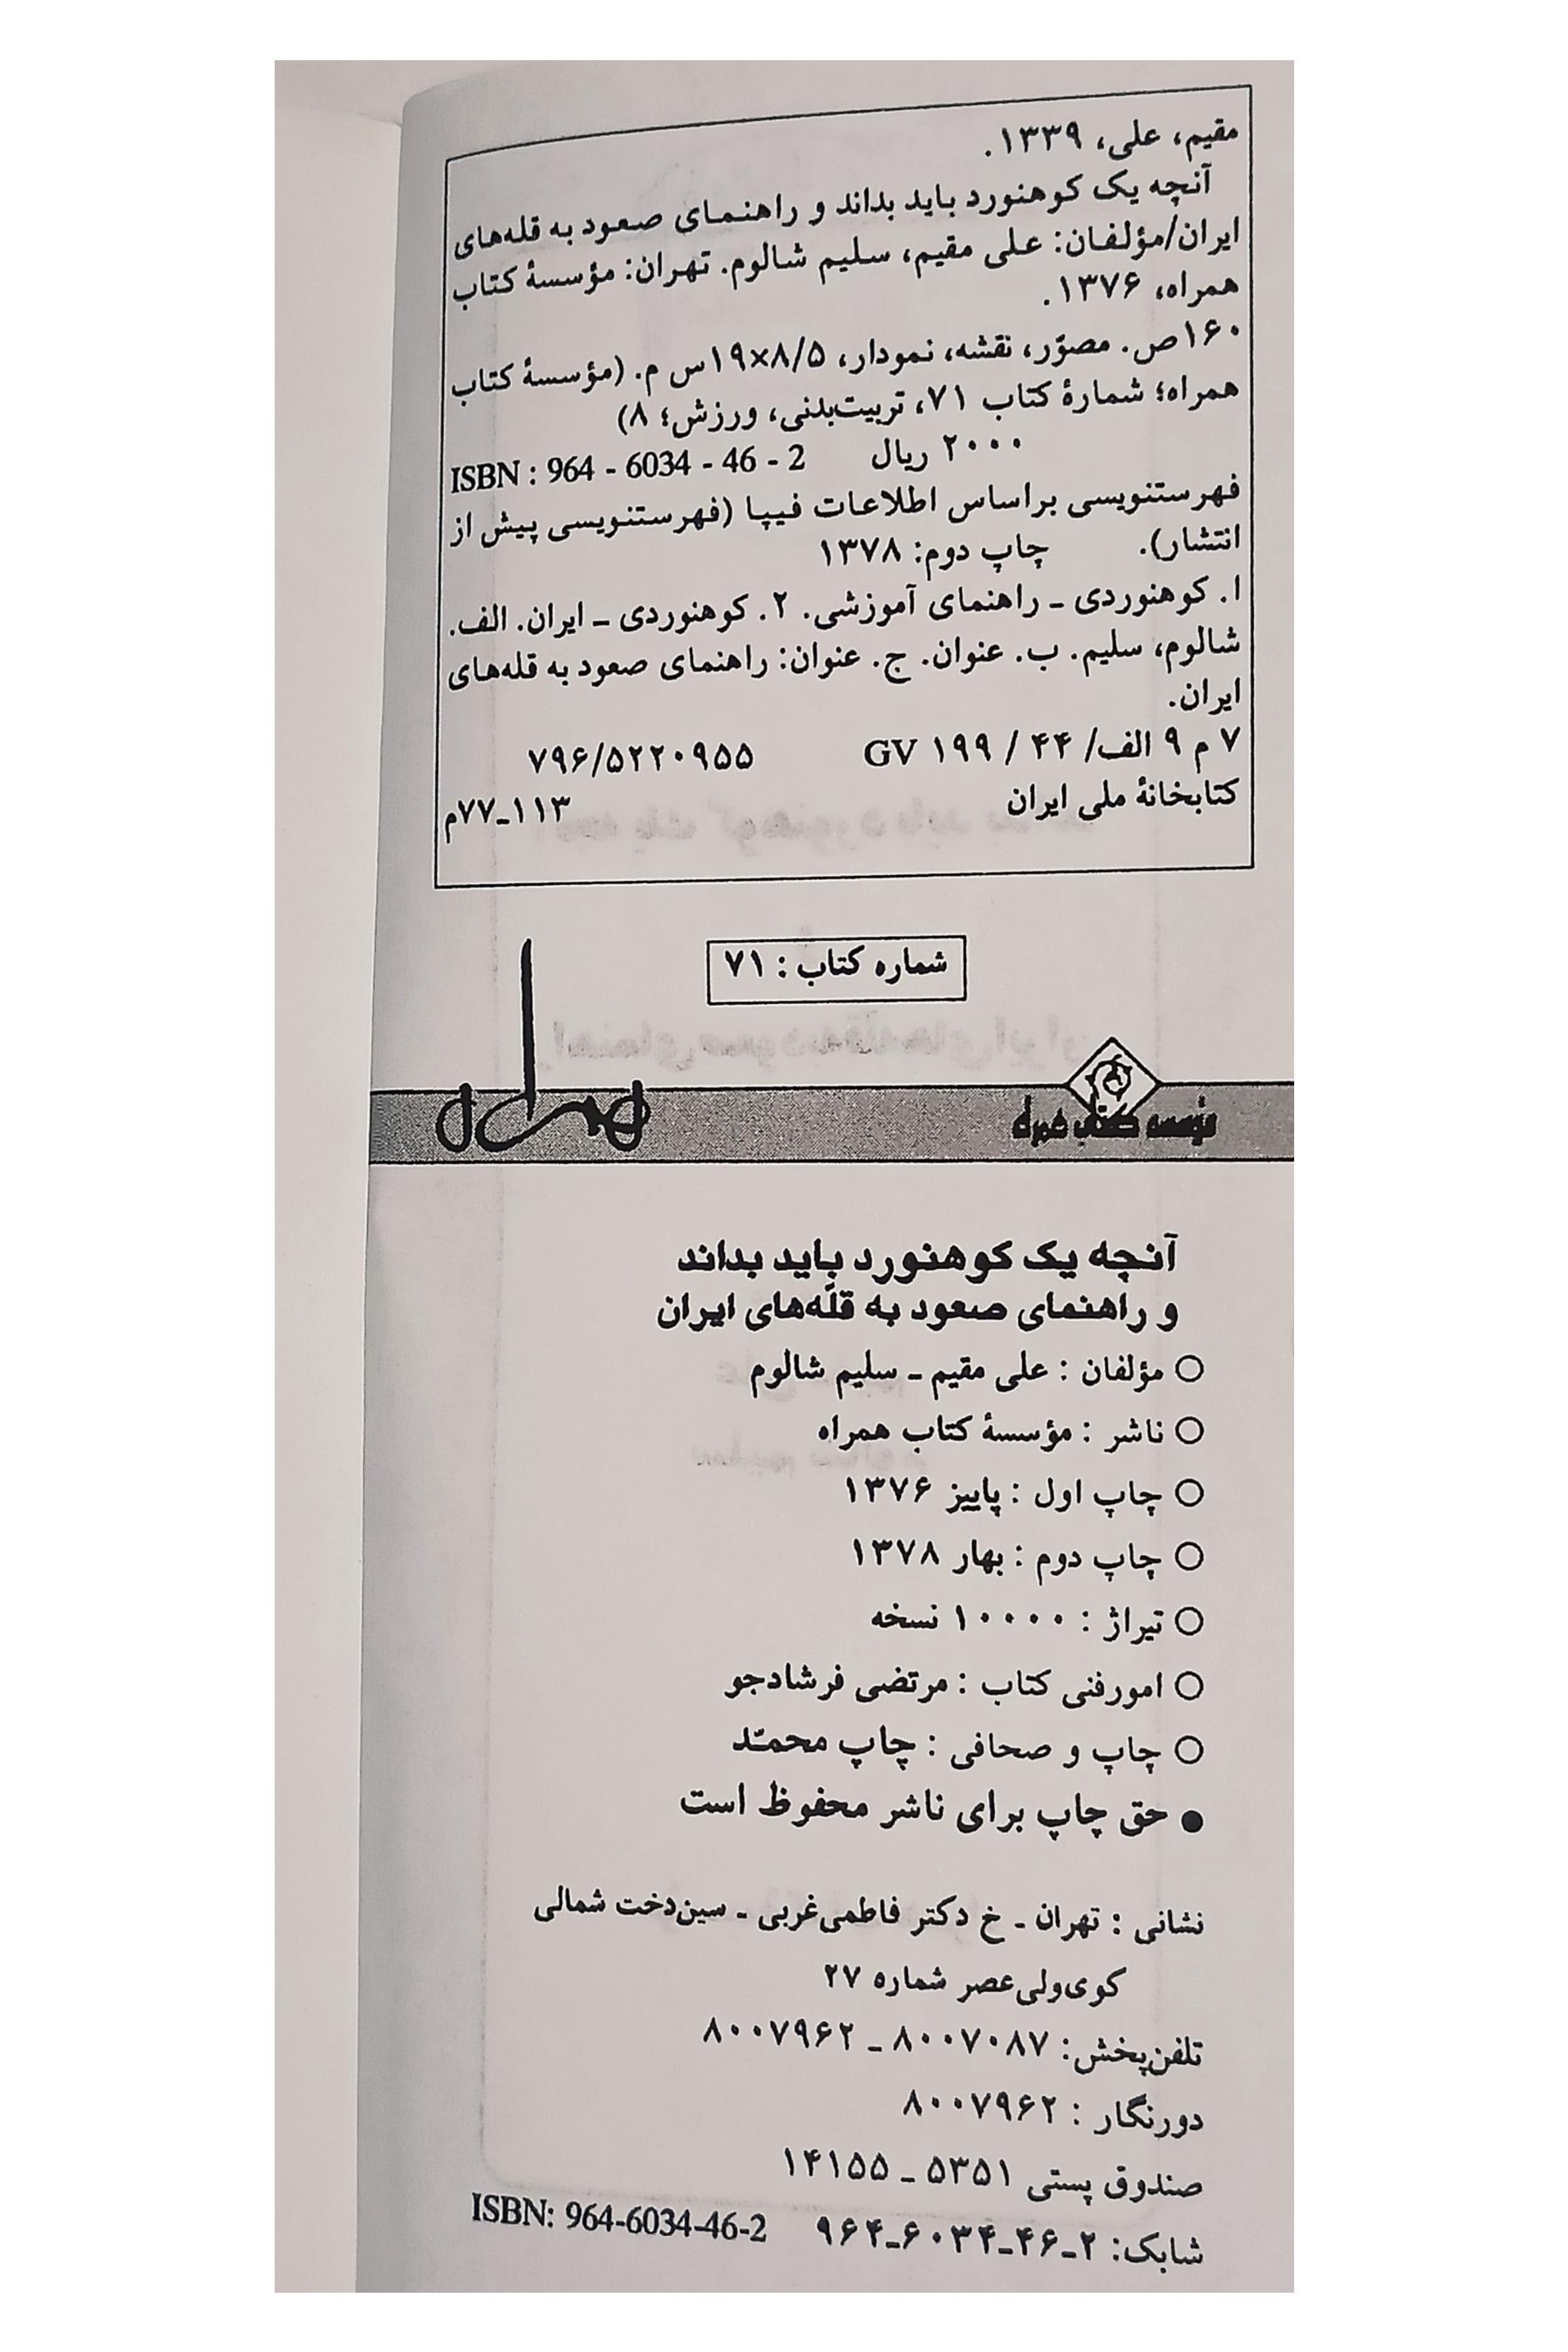 مقیم، علی، ۱۳۳۹.
آنچه یک کوهنورد باید بداند و راهنمای صعود به قله‌های
ایران/مؤلفان: علی مقیم، سلیم شالوم. تهران: مؤسسهٔ کتاب
همراه، ۱۳۷۶.
۱۶۰ص. مصوّر، نقشه، نمودار، ۱۹×۸/۵س م. (مؤسسهٔ کتاب
همراه؛ شمارهٔ کتاب ۷۱، تربیت‌بدنی، ورزش؛ ۸)
۲۰۰۰ ریال ISBN : 964 - 6034 - 46 - 2
فهرستنویسی براساس اطلاعات فیپا (فهرستنویسی پیش از
انتشار). چاپ دوم: ۱۳۷۸
۱. کوهنوردی ـ راهنمای آموزشی. ۲. کوهنوردی ـ ایران. الف.
شالوم، سلیم. ب. عنوان. ج. عنوان: راهنمای صعود به قله‌های
ایران.
۷ م ۹ الف/ ۴۴ / ۱۹۹ GV ۷۹۶/۵۲۲۰۹۵۵
کتابخانهٔ ملی ایران ۱۱۳ـ۷۷م
شماره کتاب : ۷۱
مؤسسه کتاب همراه
همراه
آنچه یک کوهنورد باید بداند
و راهنمای صعود به قلّه‌های ایران
○ مؤلفان : علی مقیم ـ سلیم شالوم
○ ناشر : مؤسسهٔ کتاب همراه
○ چاپ اول : پاییز ۱۳۷۶
○ چاپ دوم : بهار ۱۳۷۸
○ تیراژ : ۱۰۰۰۰ نسخه
○ امورفنی کتاب : مرتضی فرشادجو
○ چاپ و صحافی : چاپ محمّد
● حق چاپ برای ناشر محفوظ است
نشانی : تهران ـ خ دکتر فاطمی‌غربی ـ سین‌دخت شمالی
کوی‌ولی‌عصر شماره ۲۷
تلفن‌پخش: ۸۰۰۷۰۸۷ ـ ۸۰۰۷۹۶۲
دورنگار : ۸۰۰۷۹۶۲
صندوق پستی ۵۳۵۱ ـ ۱۴۱۵۵
شابک: ۲ـ۴۶ـ۶۰۳۴ـ۹۶۴ ISBN: 964-6034-46-2